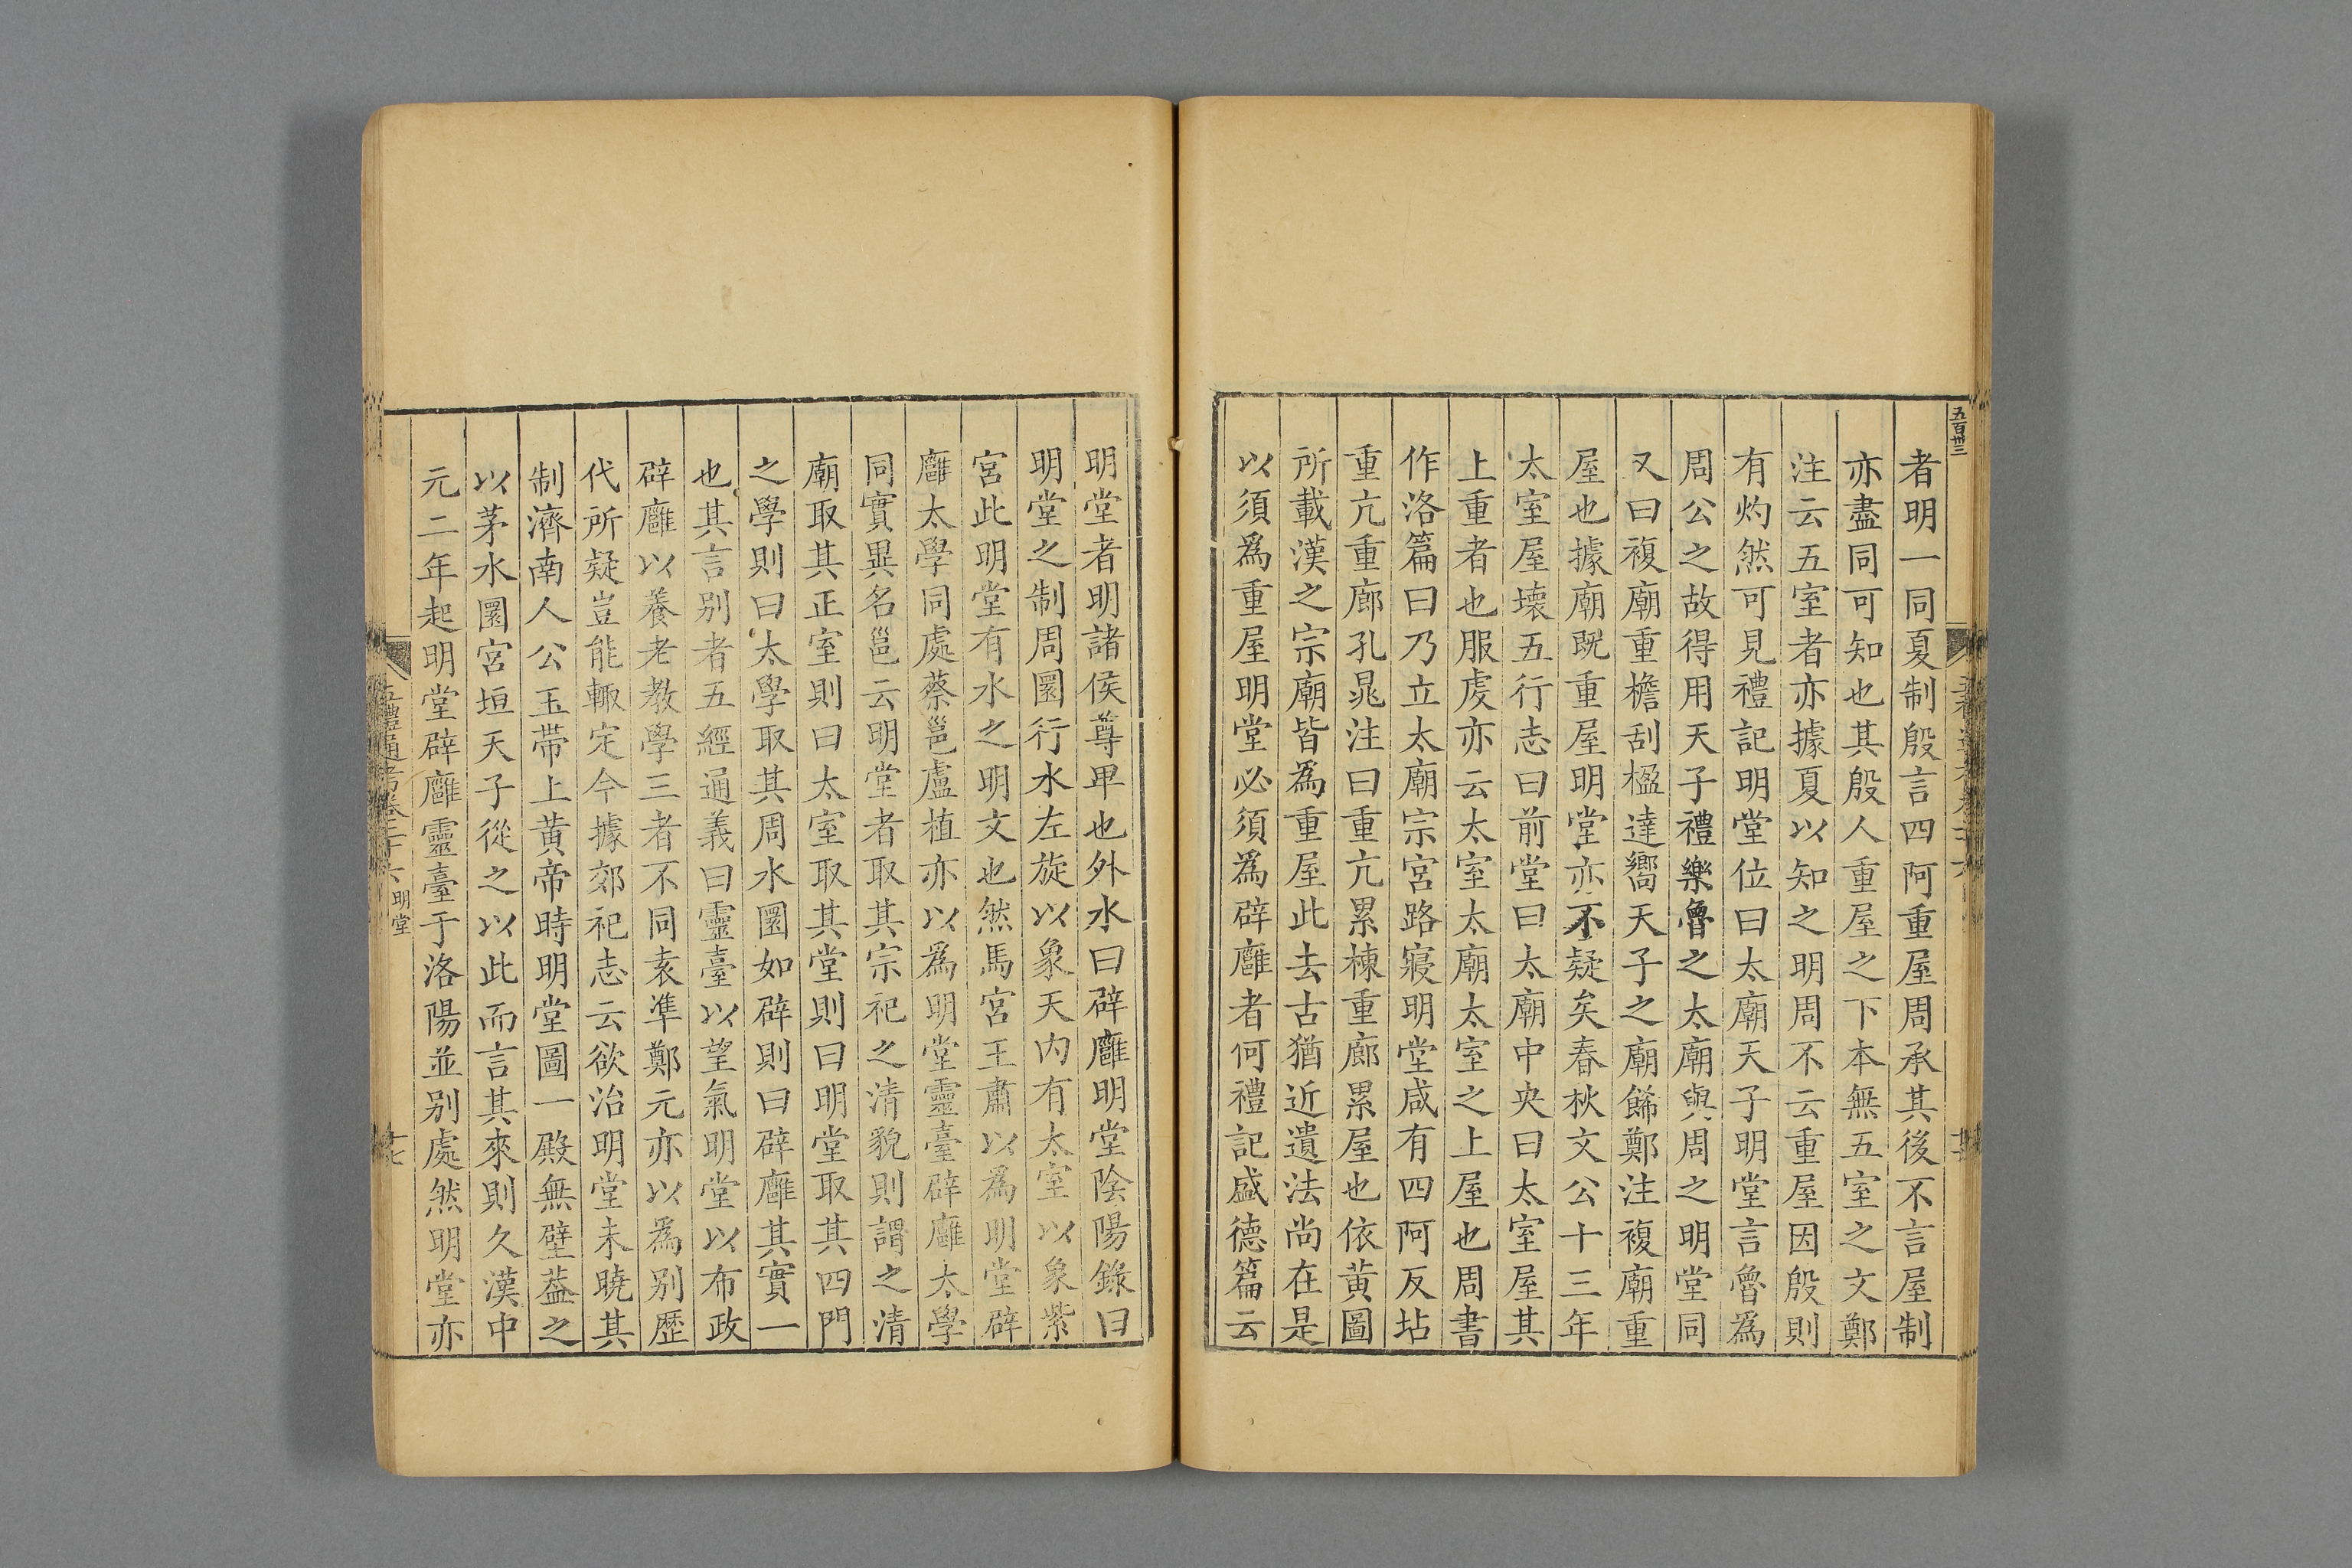 五百卅三
者明一同夏制殷言四阿重屋周承其後不言屋制
亦盡同可知也其殷人重屋之下本無五室之文鄭
注云五室者亦據夏以知之明周不云重屋因殷則
有灼然可見禮記明堂位曰太廟天子明堂言魯爲
周公之故得用天子禮樂魯之太廟與周之明堂同
又曰複廟重檐刮楹達嚮天子之廟餙鄭注複廟重
屋也據廟既重屋明堂亦不疑矣春秋文公十三年
太室屋壞五行志曰前堂曰太廟中央曰太室屋其
上重者也服虔亦云太室太廟太室之上屋也周書
作洛篇曰乃立太廟宗宮路寢明堂咸有四阿反坫
重亢重廊孔晁注曰重亢累棟重廊累屋也依黃圖
所載漢之宗廟皆爲重屋此去古猶近遺法尚在是
以須爲重屋明堂必須爲辟廱者何禮記盛德篇云
明堂者明諸侯尊卑也外水曰辟廱明堂陰陽錄曰
明堂之制周圜行水左旋以象天内有太室以象紫
宮此明堂有水之明文也然馬宮王肅以爲明堂辟
廱太學同處蔡邕盧植亦以爲明堂靈臺辟廱太學
同實異名邕云明堂者取其宗祀之清貌則謂之清
廟取其正室則曰太室取其堂則曰明堂取其四門
之學則曰太學取其周水圜如辟則曰辟廱其實一
也其言别者五經通義曰靈臺以望氣明堂以布政
辟廱以養老教學三者不同袁準鄭元亦以爲别歷
代所疑豈能輒定今據郊祀志云欲治明堂未曉其
制濟南人公玉帶上黃帝時明堂圖一殿無壁葢之
以茅水圜宮垣天子從之以此而言其來則久漢中
元二年起明堂辟廱靈臺于洛陽並别處然明堂亦
五禮通考卷二十六 明堂
十七